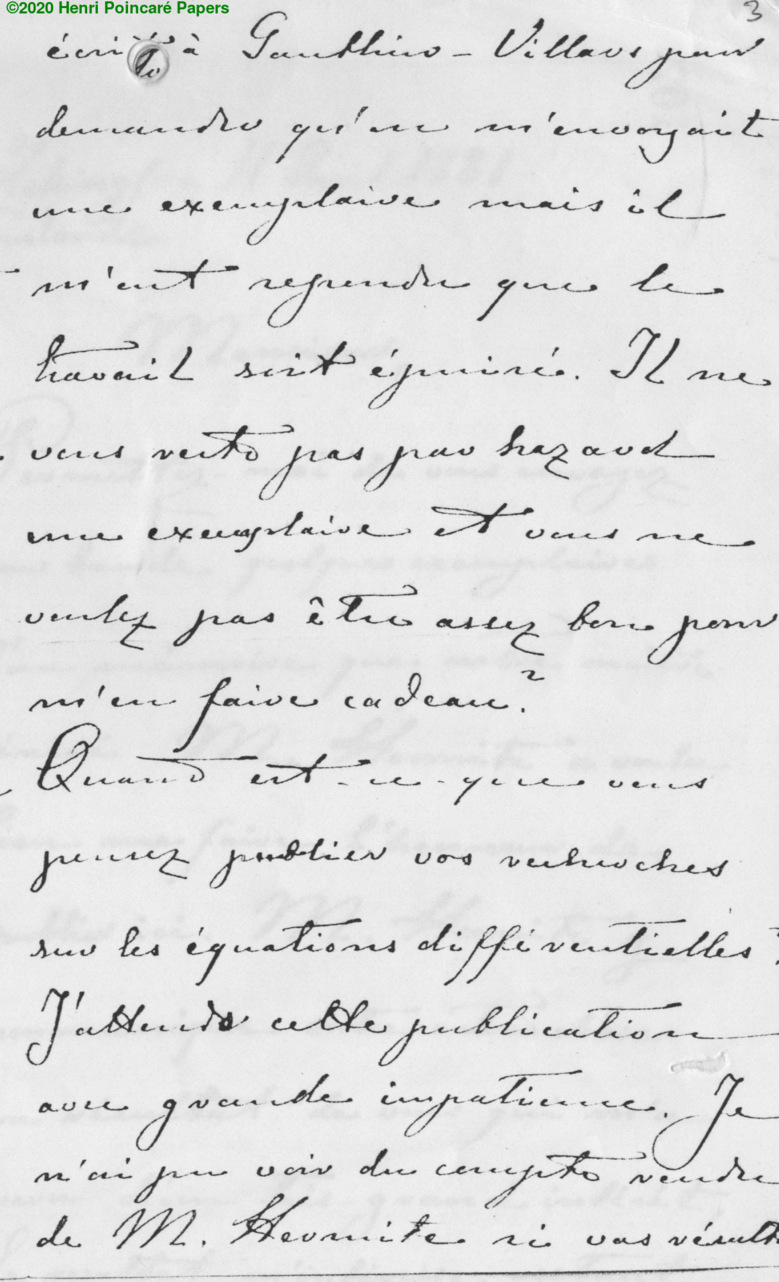 ©2020 Henri Poincaré Papers
3
écrit à Gauthier-Villars pour
demander qu'on m'envoyait
une exemplaire mais il
m'ent repondu que le
travail soit épuisé. Il ne
vous reste pas par hazard
une exemplaire et vous ne
voulez pas être assez bon pour
m'en faire cadeau?
Quand est-ce-que vous
pensez publier vos recherches
sur les équations différentielles?
J'attends cette publication
avec grande impatience. Je
n'ai pu voir du compte rendu
de M. Hermite si vos résult